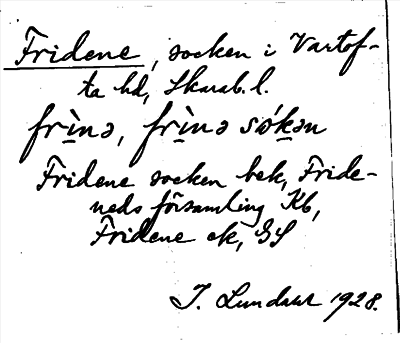 Fridene, socken i Vartof-
ta hd, Skarab. l.
frìnə, frìnə sókən
Fridene socken bek, Fride-
neds församling Kb,
Fridene ek, GS
J. 1928.